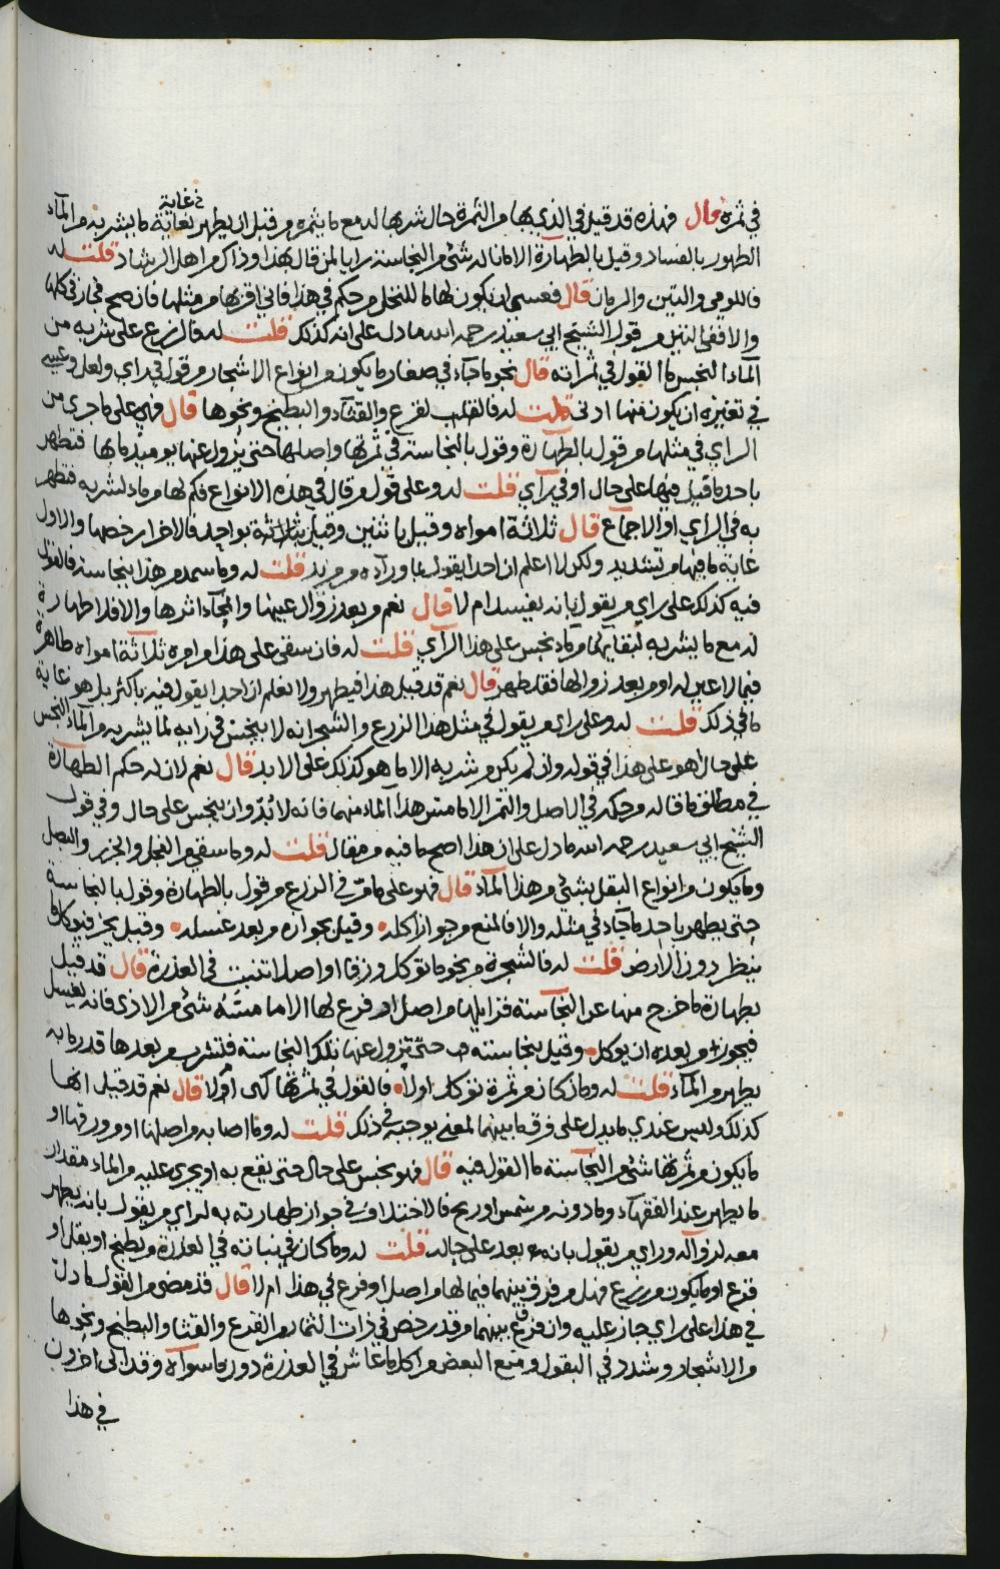 خ غاية
في ثمره قال فهذه قد قيل في الذي بها من الثمرة حال شربها له مع ما يثمره من قبل ان يطهر بغاية ما يشربه من المآء
الطهور بالفساد وقيل بالطهارة الا ما ناله شئ من النجاسة رايا لمن قال بهذا وذاك من اهل الرشاد قلت له
فاللومي والتين والرمان قال فعسى ان يكون لها ما للنخل من حكم في هذا فاني اقربها من مثلها فان صح فجاز في كلها
والا ففي التين من قول الشيخ ابي سعيد رحمه الله ما دل على انه كذلك قلت له فالزرع على شربه من
المآء النجس ما القول في ثمراته قال نحو ما جآء في صغار ما يكون من انواع الاشجار من قول في راي ولعل وعسى
في تغيره ان يكون منها ادنى قلت له فالقلب لقرع والقثآء والبطيخ ونحوها قال فهي على ما جرى من
الراي في مثلها من قول بالطهارة وقول بالنجاسة في ثمرتها واصلها حتى يزول عنها يوميذ ما بها فتطهر
باحد ما قيل فيها على حال او في رآي قلت له وعلى قول من قال في هذه الانواع فكم لها من ماء لشربه فتطهر
به في الراي او الاجماع قال ثلاثة امواه وقيل باثنين وقيل بواحد فالاخر ارخصها والاول
غاية ما فيها من تشديد ولكن لا اعلم ان احدا يقول بما ورآءه من مزيد قلت له وما سمد من هذا بنجاسة فالقول
فيه كذلك على راي من يقول بانه يفسد ام لا قال نعم من بعد زوال عينها وامحآء اثرها والا فلا طهارة
له مع ما يشربه لبقايها من ماء نجس على هذا الرآي قلت له فان سقي على هذا من امره ثلاثة امواه طاهرة
فيما لا عين له او من بعد زوالها فقد طهر قال نعم قد قيل هذا فيطهر ولا نعلم ان احدا يقول فيه باكثر بل هو غاية
ما في ذلك قلت له وعلى راي من يقول في مثل هذا الزرع والشجر انه لا ينجس في رايه لما يشربه من المآء النجس
على حال اهو على هذا في قوله وان لم يكن من شربه الا ما هو كذلك على الابد قال نعم لان له حكم الطهارة
في مطلق ما قاله من حكمه في الاصل والثمر الا ما مس هذا الماء منهما فانه لا بد وان ينجس على حال وفي قول
الشيخ ابي سعيد رحمه الله ما دل على ان هذا اصح ما فيه من مقال قلت له وما سقي من الفجل والجزر والبصل
وما يكون من انواع البقل بشئ من هذا المآء قال فهو على ما مر في الزرع من قول بالطهارة وقول بالنجاسة
حتى يطهر باحد ما جآء في مثله والا فالمنع من جواز اكله وقيل بجوازه من بعد غسله وقيل يجز فيوكل ما
يظهر دون الارض قلت له فالشجرة من نحو ما توكل ورقا او اصلا تنبت في العذرة قال قد قيل
بطهارة ما خرج منها عن النجآسة فزايلها من اصل او فرع لها الا ما مسّه شئ من الاذى فانه يغسل
فيجوز من بعده ان يوكل وقيل بنجاسته حتى تزول عنها تلك النجاسة فتشرب من بعدها قدر ما به
يطهر من المآء قلت له وما كان من ثمرة توكل اولا فالقول في ثمرتها كهي ام لا قال نعم قد قيل انها
كذلك وليس عندي ما يدل على فرق ما بينهما لمعنى يوجبه في ذلك قلت له وما اصابه من اصلها او من ورقها او
ما يكون من ثمرتها شئ من النجآسة ما القول فيه قال فهو نجس على حال حتى يقع به او يجري عليه من الماء مقدار
ما يطهر عند الفقهآء وما دونه من شمس او ريح فالاختلاف في جواز طهارته به لراي من يقول بانه يطهر
معه لزواله وراي من يقول بانه بعد على حاله قلت له وما كان في نباته في العذرة من بطيخ او بقل او
قرع او ما يكون من زرع فهل من فرق بينهما فيما لها من اصل او فرع في هذا ام لا قال قد مضى من القول ما دل
في هذا على راي جاز عليه وان فرق بينهما من قد رخص في ذات الثمار من القرع والقثا والبطيخ ونحوها
من الاشجار وشدد في البقول ومنع البعض من اكل ما عاش في العذرة دون ما سوآه وقد الى اخرون
في هذا